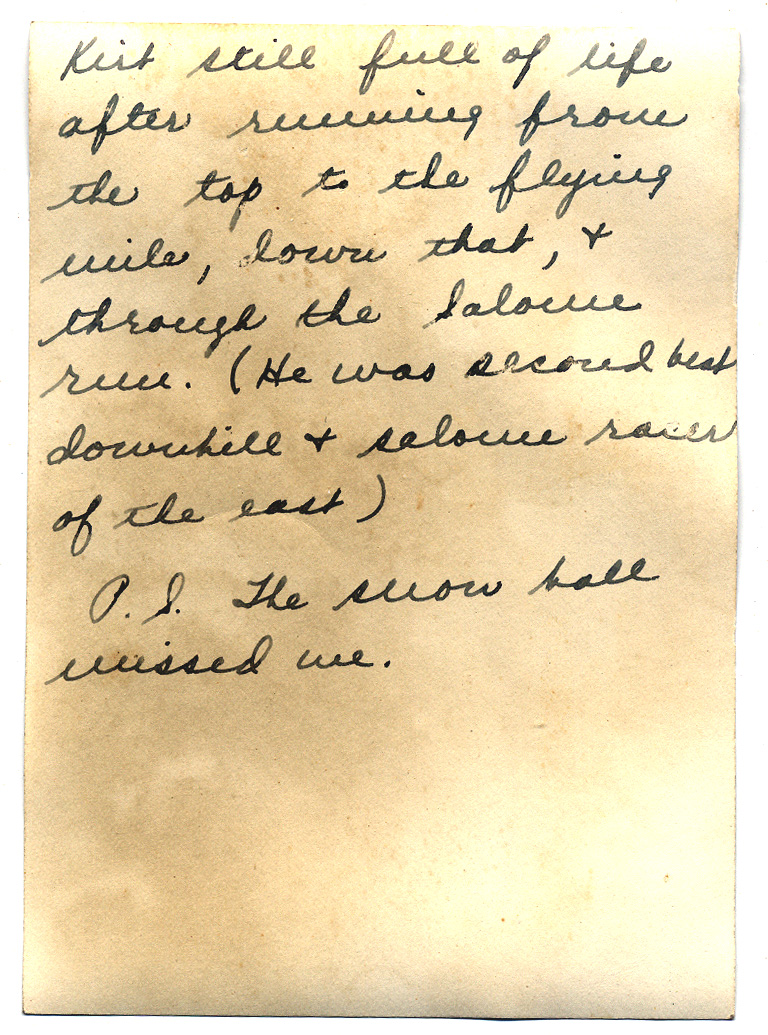 Kirt still full of life
after running from
the top to the flying
mile, down that, &
through the Salome
run. (He was second best
downhill & salome racer
of the east)
P.S. The snow ball
missed me.